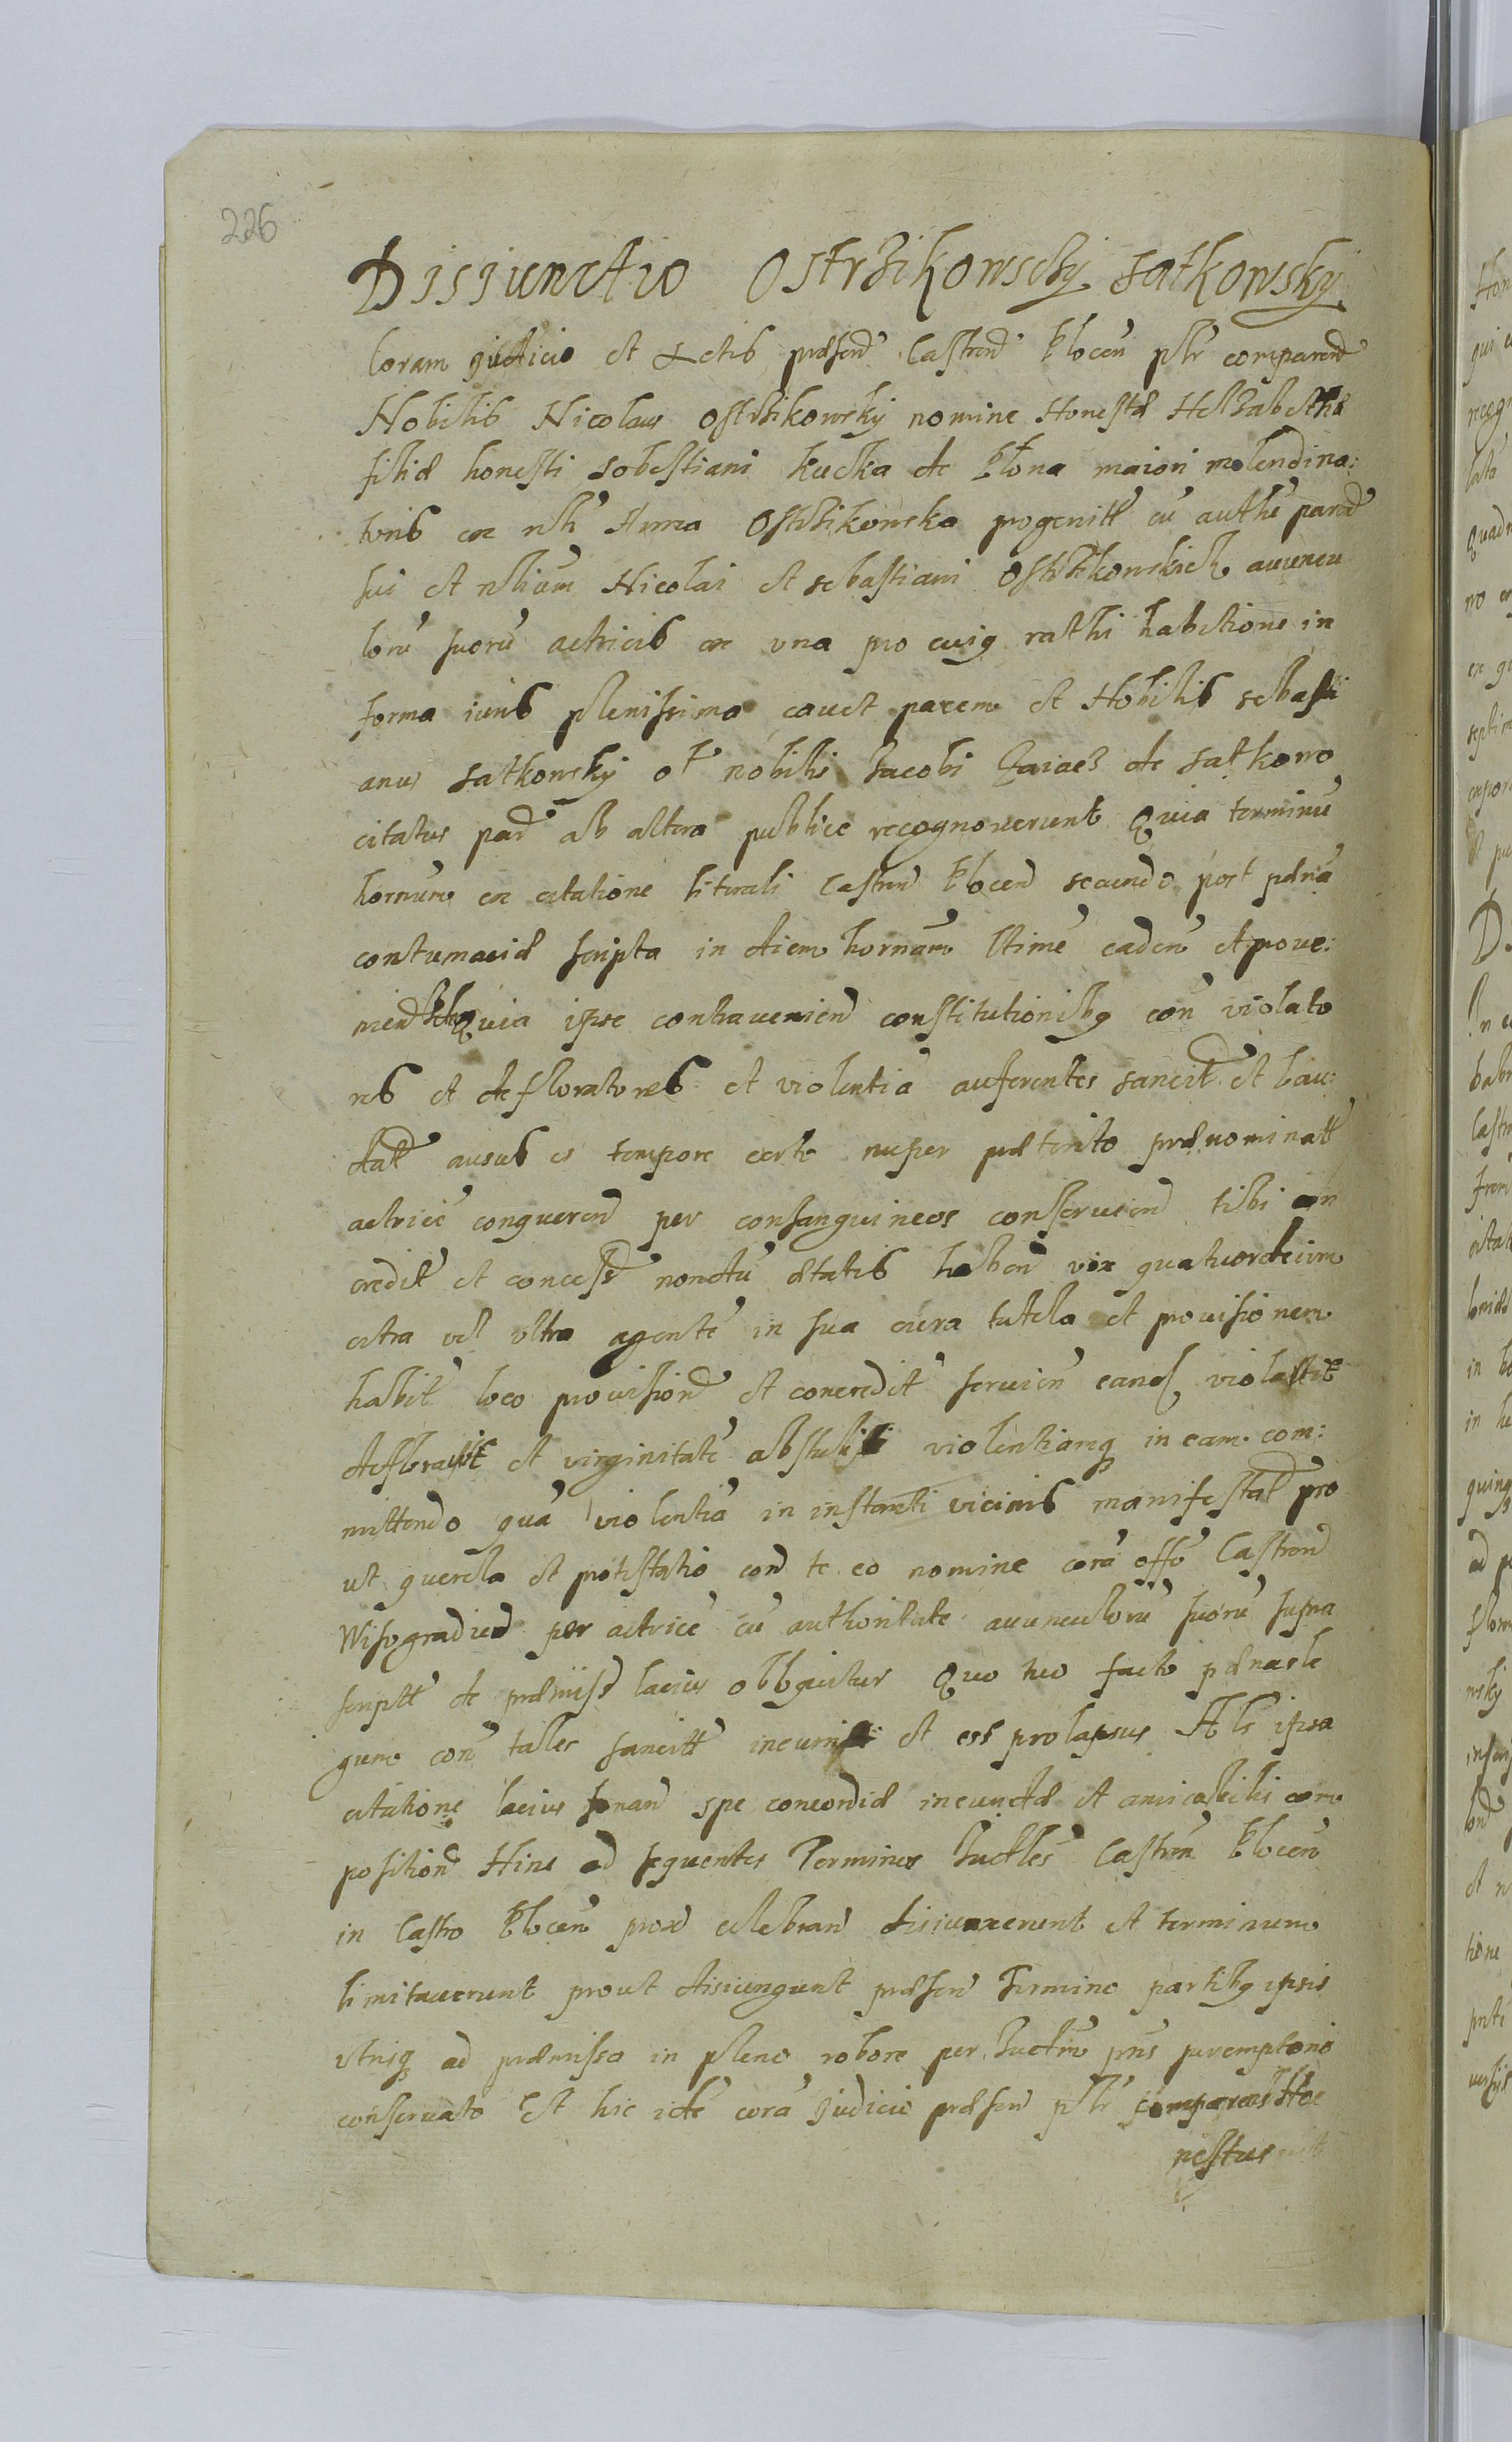 226
Disiunctio Ostrzikowsky Satkowsky
Coram iudicio et Actis præsen Castren Plocen plr comparen
Nobilis Nicolaus Ostrzikowsky nomine Honestæ Helzabethæ
filiæ honesti Sebestiani Kucka de Plona maiori molendina:
toris ex nli Anna Ostrzikowska progenitt cu authe paren
sui et nlium Nicolai et Sebastiani Ostrzikowskich auuncu
loru suoru actricis ex vna pro cuiq rathi habitione in
forma iuris plenissima cauet partem et Nobilis Sebasti
anus Satkowsky ol nobilis Jacobi de Satkowo
citatus par ab altera publice recognouerunt Quia terminu
hornum ex citatione literali Castren Plocen secundo post
contumaciæ scripta in diem hornam ltime caden et proue:
nien Quia ipse contrauenien constitutionibq con violato
res et defloratores et violentia auferentes sancit et lau:
dat ausus es tempore certo nuper præterito prænominatt
actrice conqueren per consanguineos conseruien tibi con
credit et concess nondu ætatis haben vix quatuordecim
citra vel vltra agente in sua cura tutela et prouisionem
habit loco prouision et concredit seruien eand violasti
deflorasti et virginitate abstulisti violentiamq in eam com:
mittendo qua violentia in instanti vicinis manifestat pro
ut querela et protestatio con te eo nomine cora offo Castren
Wisogradien per actrice cu authoritate auunculoru suoru supra
scriptt de præmiss lacius obloquitur Quo tuo facto
con tales sancitt incurristi et es prolapsus Als ipsa
citatione lacius sonan spe concordiæ ineundæ et amicabilis com
position Hinc ad sequentes Terminos Judles Castren Plocen
in Castro Plocen prox celebran disiunxerunt et terminum
limitauerunt prout disiungunt præsen termino partibq ipsis
vtrisq ad præmissa in pleno robore per Judm pns peremptorio
conseruato Et hic ide cora Judicio præsen plr comparens Ho
nestus